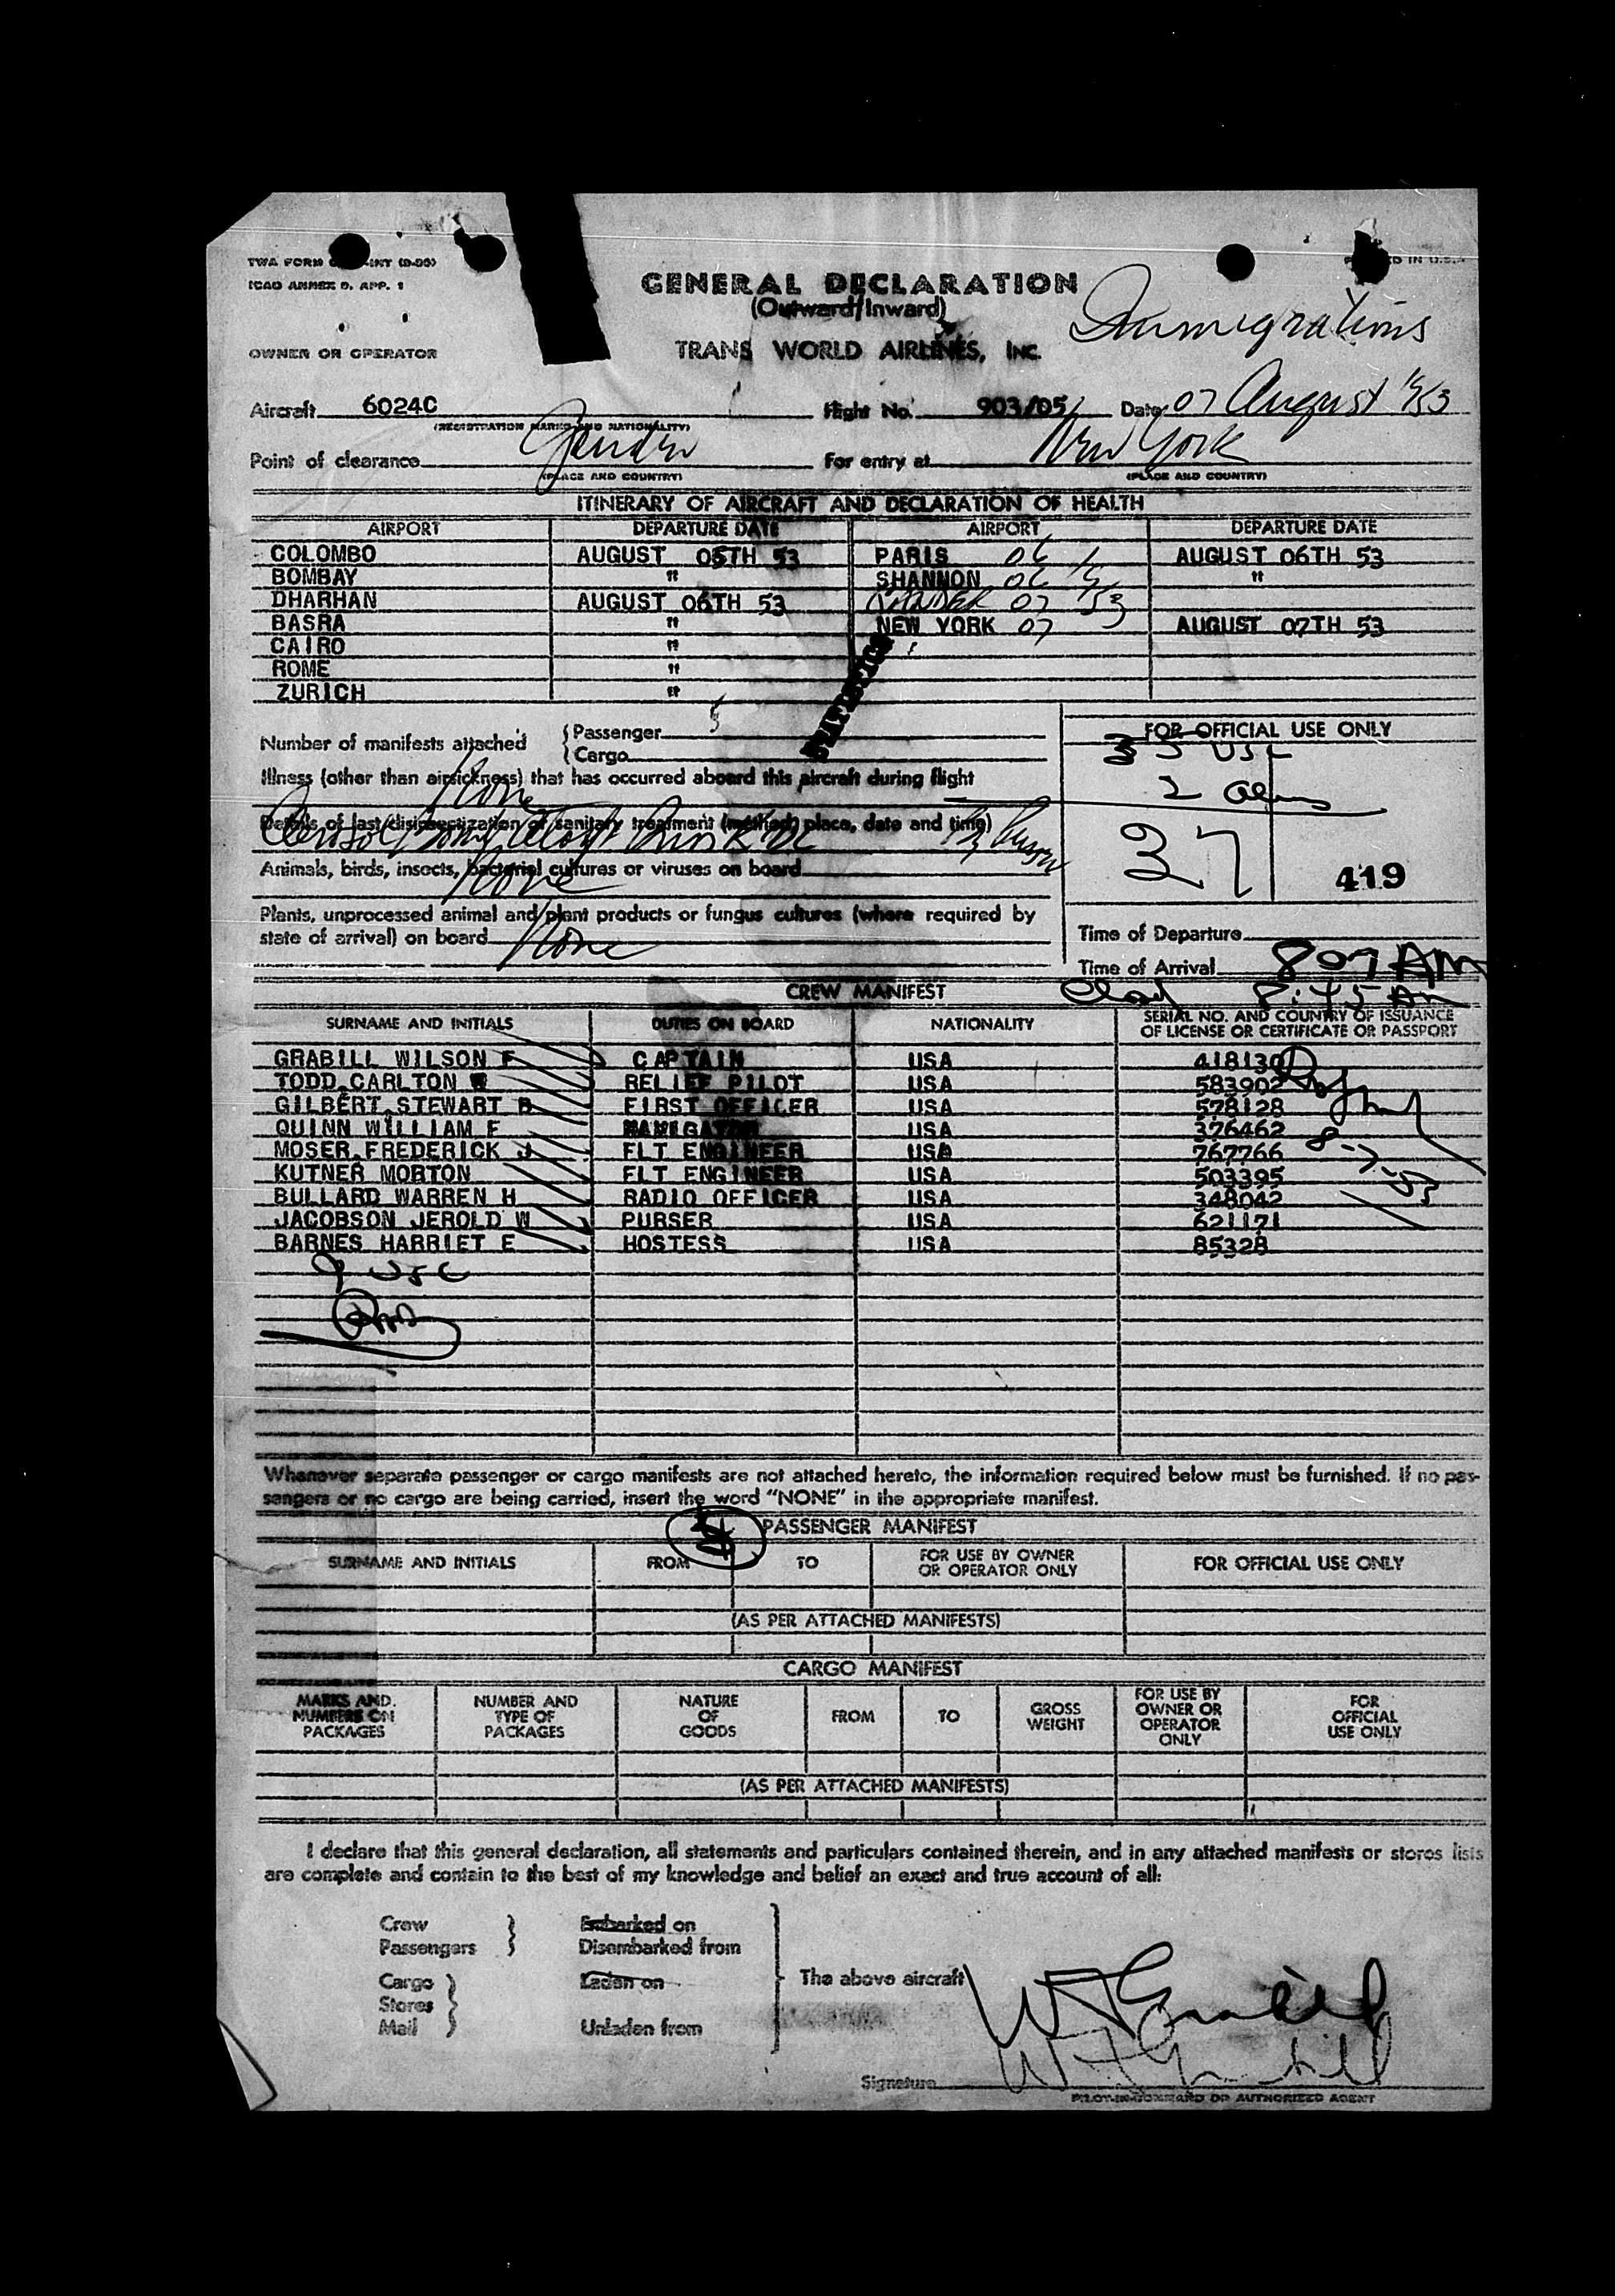 TWA FORM
ICAO ANNEX 9. APP. 1
GENERAL DECLARATION
(Outward/Inward)
Immigrations
OWNER OR OPERATOR
TRANS WORLD AIRLINES, INC.
Aircraft 6024C Flight No. 903/05 Date 07 August 1953
(REGISTRATION MARKS AND NATIONALITY)
Point of clearance Gander For entry at New York
(PLACE AND COUNTRY) (PLACE AND COUNTRY)
ITINERARY OF AIRCRAFT AND DECLARATION OF HEALTH
AIRPORT DEPARTURE DATE AIRPORT DEPARTURE DATE
COLOMBO AUGUST 05TH 53 PARIS 06 AUGUST 06TH 53
BOMBAY " SHANNON 06 "
DHARHAN AUGUST 06TH 53 GANDER 07 53
BASRA " NEW YORK 07 AUGUST 07TH 53
CAIRO "
ROME "
ZURICH "
STATISTICS
Number of manifests attached { Passenger
{ Cargo
FOR OFFICIAL USE ONLY
35 USC
2 aliens
37
419
Illness (other than airsickness) that has occurred aboard this aircraft during flight
None
Details of last disinsectization or sanitary treatment (method, place, date and time)
Aerosol Bomb
Animals, birds, insects, bacterial cultures or viruses on board
None
Plants, unprocessed animal and plant products or fungus cultures (where required by
state of arrival) on board None
Time of Departure
Time of Arrival 807 AM
8:45 AM
CREW MANIFEST
SURNAME AND INITIALS DUTIES ON BOARD NATIONALITY SERIAL NO. AND COUNTRY OF ISSUANCE OF LICENSE OR CERTIFICATE OR PASSPORT
GRABILL WILSON F CAPTAIN USA 418130
TODD CARLTON W RELIEF PILOT USA 583902
GILBERT STEWART B FIRST OFFICER USA 578128
QUINN WILLIAM F NAVIGATOR USA 376462
MOSER FREDERICK J FLT ENGINEER USA 767766
KUTNER MORTON FLT ENGINEER USA 503395
BULLARD WARREN H RADIO OFFICER USA 348042
JACOBSON JEROLD W PURSER USA 621171
BARNES HARRIET E HOSTESS USA 85328
8-7-53
9 USC
Whenever separate passenger or cargo manifests are not attached hereto, the information required below must be furnished. If no pas-
sengers or no cargo are being carried, insert the word "NONE" in the appropriate manifest.
PASSENGER MANIFEST
SURNAME AND INITIALS FROM TO FOR USE BY OWNER OR OPERATOR ONLY FOR OFFICIAL USE ONLY
(AS PER ATTACHED MANIFESTS)
CARGO MANIFEST
MARKS AND NUMBERS ON PACKAGES NUMBER AND TYPE OF PACKAGES NATURE OF GOODS FROM TO GROSS WEIGHT FOR USE BY OWNER OR OPERATOR ONLY FOR OFFICIAL USE ONLY
(AS PER ATTACHED MANIFESTS)
I declare that this general declaration, all statements and particulars contained therein, and in any attached manifests or stores lists
are complete and contain to the best of my knowledge and belief an exact and true account of all:
Crew Embarked on
Passengers Disembarked from
Cargo Laden on The above aircraft
Stores
Mail Unladen from
W F Grabill
W F Grabill
Signature
PILOT-IN-COMMAND OR AUTHORIZED AGENT